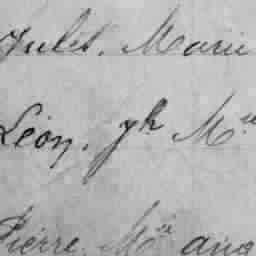 Jules. Marie
Léon. Jh Mie
Pierre. Mie aug